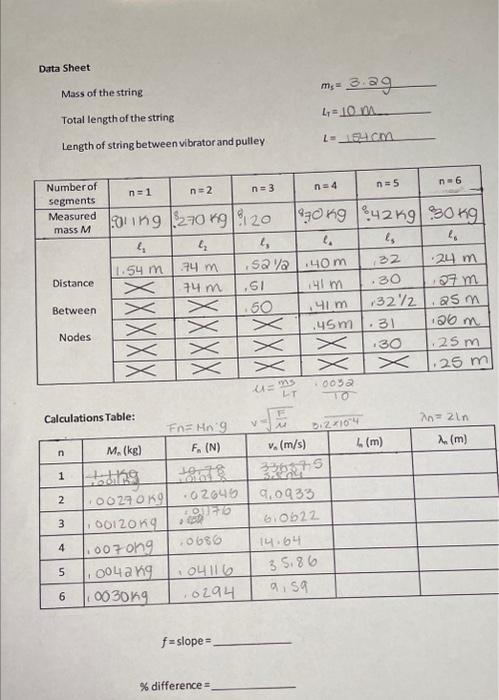 Data Sheet
Mass of the string ms= 3.2g
Total length of the string LT= 10 m
Length of string between vibrator and pulley L= 154cm
Number of segments n=1 n=2 n=3 n=4 n=5 n=6
Measured mass M kg .270 kg .120 kg .42kg .30 kg
ℓ1 ℓ2 ℓ3 ℓ4 ℓ5 ℓ6
Distance Between Nodes
1.54 m .74 m .52 1/2 .40 m .32 .24 m
X 74 m .51 .41 m .30 .27 m
X X .50 .41 m .32 1/2 .25 m
X X X .45m .31 .26 m
X X X X .30 .25 m
X X X X X .25 m
μ= ms/LT .0032/10
Calculations Table: Fn= Mn·g v=√F/μ 3.2x10-4 λn= 2Ln
n Mn (kg) Fn (N) vn (m/s) ln (m) λn (m)
1
2 .00270kg .02646 9.0933
3 .00120kg .01176 6.0622
4 .0070kg .0686 14.64
5 .0042kg .04116 35.86
6 .0030kg .0294 9.59
f=slope=
% difference=